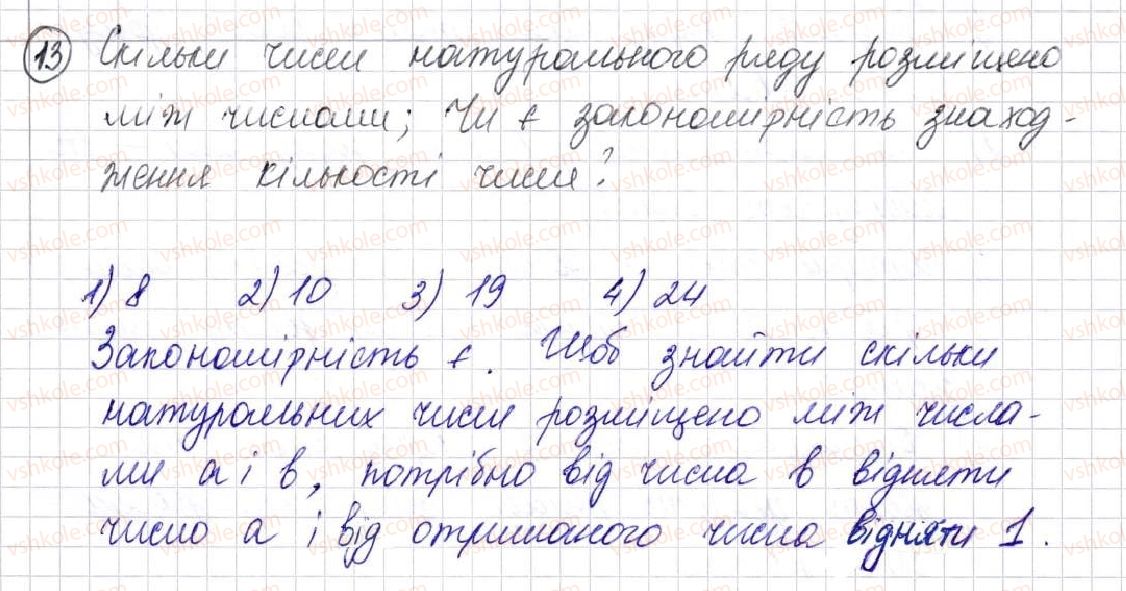 13 Скільки чисел натурального ряду розміщено
між числами; Чи є закономірність знаход-
ження кількості чисел?
1) 8 2) 10 3) 19 4) 24
Закономірність є. Щоб знайти скільки
натуральних чисел розміщено між числа-
ми a і b, потрібно від числа b відняти
число a і від отриманого числа відняти 1.